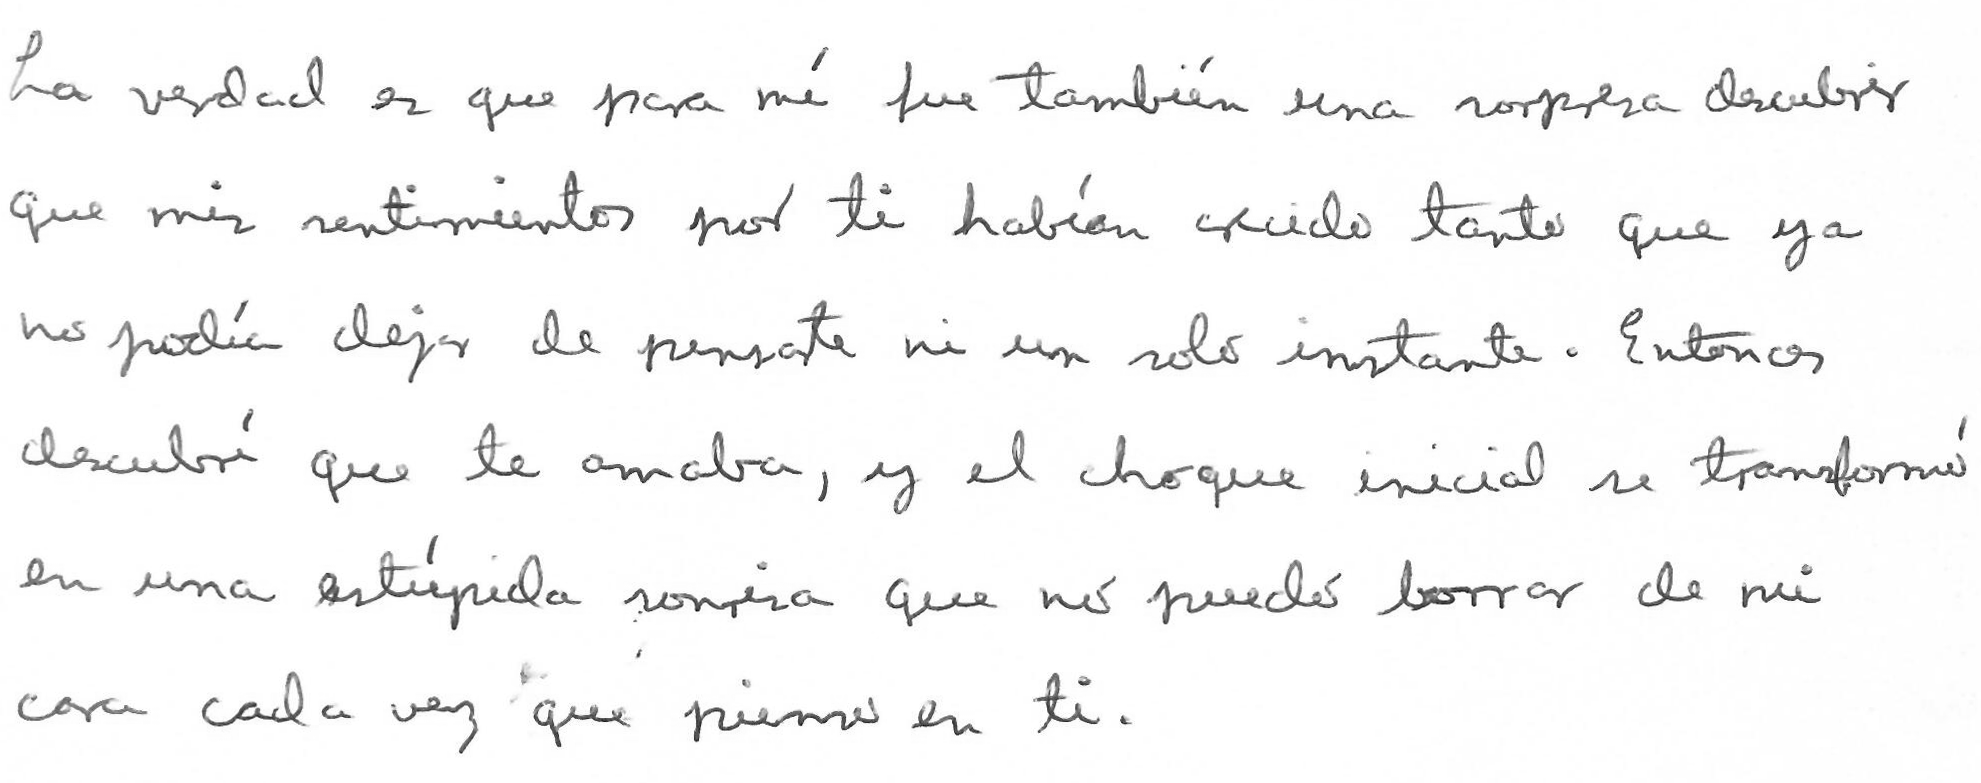 La verdad es que para mí fue también una sorpresa descubrir
que mis sentimientos por ti habían crecido tanto que ya
no podía dejar de pensarte ni un solo instante. Entonces
descubrí que te amaba, y el choque inicial se transformó
en una estúpida sonrisa que no puedo borrar de mi
cara cada vez que pienso en ti.